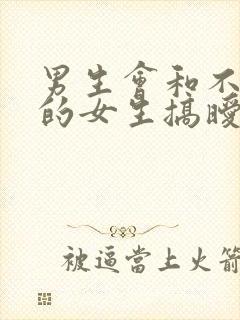 男生會和不
的女生搞曖
被逼當上火箭